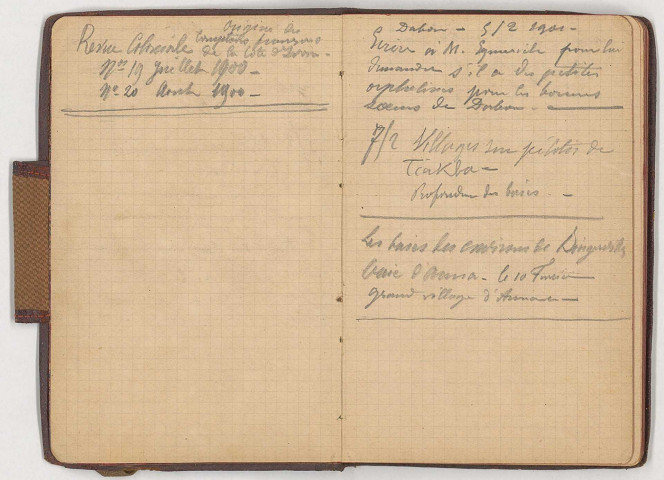 Origine des
Revue Coloniale comptoirs français
de la Côte d'Ivoire.
Nos 19 Juillet 1900 -
No 20 Aout 1900 -
Dabou - 5/2 1901 -
Ecrire à M. pour lui
demander s'il a des petites
orphelines pour les bonnes
soeurs de Dabou. -
7/2 Villages sur pilotis de
Tiakba -
Profondeur des baies. -
Les baies des environs de
baie d' - le 10 Fevrier
grand village d'